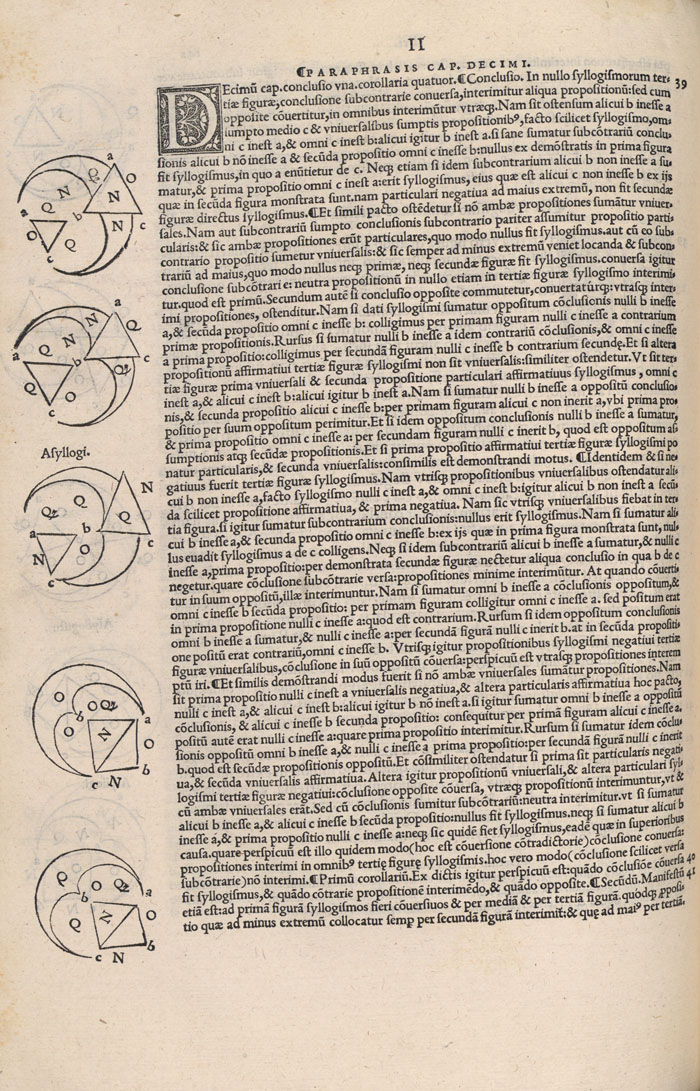 II
¶PARAPHRASIS CAP. DECIMI.
DEcimũ cap.conclusio vna.corollaria quatuor.¶Conclusio. In nullo syllogismorum ter⸗ 39
tiæ figuræ,conclusione subcontrarie conuersa,interimitur aliqua propositionũ:sed cum
opposite cõuertitur,in omnibus interimũtur vtræq;.Nam sit ostensum alicui b inesse a
sumpto medio c & vniuersalibus sumptis propositionibꝰ,facto scilicet syllogismo,om⸗
ni c inest a,& omni c inest b:alicui igitur b inest a.si sane sumatur subcõtrariũ conclu⸗
sionis alicui b nõ inesse a & secũda propositio omni c inesse b:nullus ex demõstratis in prima figura
fit syllogismus,in quo a enũtietur de c. Neq; etiam si idem subcontrarium alicui b non inesse a su⸗
matur,& prima propositio omni c inest a:erit syllogismus, eius quæ est alicui c non inesse b ex ijs
quæ in secũda figura monstrata sunt.nam particulari negatiua ad maius extremũ, non fit secundæ
figuræ directus syllogismus.¶Et simili pacto ostẽdetur si nõ ambæ propositiones sumãtur vniuer⸗
sales. Nam aut subcontrariũ sumpto conclusionis subcontrario pariter assumitur propositio parti⸗
cularis:& sic ambæ propositiones erũt particulares,quo modo nullus fit syllogismus.aut cũ eo sub⸗
contrario propositio sumetur vniuersalis:& sic semper ad minus extremũ veniet locanda & subcon⸗
trariũ ad maius,quo modo nullus neq; primæ, neq; secundæ figuræ fit syllogismus.conuersa igitur
conclusione subcõtrarie: neutra propositionũ in nullo etiam in tertiæ figuræ syllogismo interimi⸗
tur.quod est primũ.Secundum autẽ si conclusio opposite commutetur,conuertatúrq;:vtrasq; inter⸗
imi propositiones, ostenditur. Nam si dati syllogismi sumatur oppositum cõclusionis nulli b inesse
a,& secunda propositio omni c inesse b: colligimus per primam figuram nulli c inesse a contrarium
primæ propositionis.Rursus si sumatur nulli b inesse a idem contrariũ cõclusionis,& omni c inesse
a prima propositio:colligimus per secundã figuram nullic inesse b contrarium secundę.Et si altera
propositionũ affirmatiui tertiæ figuræ syllogismi non sit vniuersalis:similiter ostendetur.Vt sit ter⸗
tiæ figuræ prima vniuersali & secunda propositione particulari affirmatiuus syllogismus , omni c
inest a,& alicui c inest b:alicui igitur b inest a.Nam si sumatur nulli b inesse a oppositũ conclusio⸗
nis,& secunda propositio alicui c inesse b:per primam figuram alicui c non inerit a,vbi prima pro⸗
positio per suum oppositum perimitur.Et si idem oppositum conclusionis nulli b inesse a sumatur,
& prima propositio omni c inesse a: per secundam figuram nulli c inerit b, quod est oppositum as⸗
sumptionis atq; secũdæ propositionis.Et si prima propositio affirmatiui tertiæ figuræ syllogismi po
natur particularis,& secunda vniuersalis:consimilis est demonstrandi motus. ¶Identidem & si ne⸗
gatiuus fuerit tertiæ figuræ syllogismus. Nam vtrisq; propositionibus vniuersalibus ostendatur ali⸗
cui b non inesse a,facto syllogismo nulli c inest a,& omni c inest b:igitur alicui b non inest a secũ⸗
da scilicet propositione affirmatiua, & prima negatiua. Nam sic vtrisq; vniuersalibus fiebat in ter⸗
tia figura.si igitur sumatur subcontrarium conclusionis:nullus erit syllogismus.Nam si sumatur ali⸗
cui b inesse a,& secunda propositio omni c inesse b:ex ijs quæ in prima figura monstrata sunt, nul⸗
lus euadit syllogismus a de c colligens.Neq; si idem subcontrariũ alicui b inesse a sumatur,& nulli c
inesse a,prima propositio:per demonstrata secundæ figuræ nectetur aliqua conclusio in qua b de c
negetur.quare cõclusione subcõtrarie versa:propositiones minime interimũtur. At quando cõuerti⸗
tur in suum oppositũ,illæ interimuntur. Nam si sumatur omni b inesse a cõclusionis oppositum,&
omni c inesse b secũda propositio: per primam figuram colligitur omni c inesse a. sed positum erat
in prima propositione nulli c inesse a:quod est contrarium. Rursum si idem oppositum conclusionis
omni b inesse a sumatur,& nulli c inesse a:per secundã figurã nulli c inerit b.at in secũda propositi⸗
one positũ erat contrariũ,omni c inesse b. Vtrisq; igitur propositionibus syllogismi negatiui tertiæ
figuræ vniuersalibus,cõclusione in suũ oppositũ cõuersa:perspicuũ est vtrasq; propositiones interem
ptũ iri. ¶Et similis demõstrandi modus fuerit si nõ ambæ vniuersales sumãtur propositiones.Nam
sit prima propositio nulli c inest a vniuersalis negatiua,& altera particularis affirmatiua hoc pacto,
nulli c inest a,& alicui c inest b:alicui igitur b nõ inest a.si igitur sumatur omni b inesse a oppositũ
cõclusionis, & alicui c inesse b secunda propositio: consequitur per primã figuram alicui c inesse a.
positũ autẽ erat nulli c inesse a:quare prima propositio interimitur.Rursum si sumatur idem cõclu⸗
sionis oppositũ omni b inesse a,& nulli c inesse a prima propositio:per secundã figurã nulli c inerit
b.quod est secũdæ propositionis oppositũ.Et cõsimiliter ostendatur si prima sit particularis negati⸗
ua,& secũda vniuersalis affirmatiua.Altera igitur propositionũ vniuersali,& altera particulari syl⸗
logismi tertiæ figuræ negatiui:cõclusione opposite cõuersa, vtræq; propositionũ interimuntur,vt &
cũ ambæ vniuersales erãt.Sed cũ cõclusionis sumitur subcõtrariũ:neutra interimitur.vt si sumatur
alicui b inesse a,& alicui c inesse b secũda propositio:nullus fit syllogismus.neq; si sumatur alicui b
inesse a,& prima propositio nulli c inesse a:neq; sic quidẽ fiet syllogismus,eadẽ quæ in superioribus
causa.quare perspicuũ est illo quidem modo(hoc est cõuersione cõtradictorie)cõclusione conuersa:
propositiones interimi in omnibꝰ tertię figurę syllogismis.hoc vero modo(cõclusione scilicet versa
subcõtrarie)nõ interimi.¶Primũ corollariũ.Ex dictis igitur perspicuũ est:quãdo cõclusiõe cõuersa 40
fit syllogismus,& quãdo cõtrarie propositione interimẽdo,& quãdo opposite.¶Secũdũ.Manifestũ 41
etiã est:ad primã figurã syllogismos fieri cõuersiuos & per mediã & per tertiã figurã.quodq; pposi⸗
tio quæ ad minus extremũ collocatur semp per secundã figurã interimit:& quę ad maiꝰ per tertiã.
a
Q N O
a Q b N c
N Q
c
a
N N
Q Q
a b c
Q Q
c
Asyllogi.
N
Q Q Q
a b c
N O
c
O O Q
b a
O N O
c N b
Q O Q
b a
Q N O
c N b